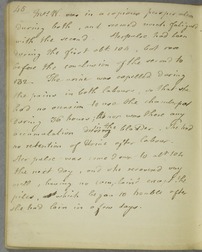 48 
was in a copious perspiration
during both, and seemed much fatigued
with the second. had been
during the first 104, but rose
before the conclusion of the second to
132. The urine was expelled during
the pains in both labours, so that she
had no occasion to use the chamber pot
during 36 hours; there was there any
accumulation the bladder. She had
no retention of Urine after labour.
Her pulse was come down to 102
the next day, and she recovered very
well, having no complaint except the
piles, which began to trouble after
she had lain in a few days.